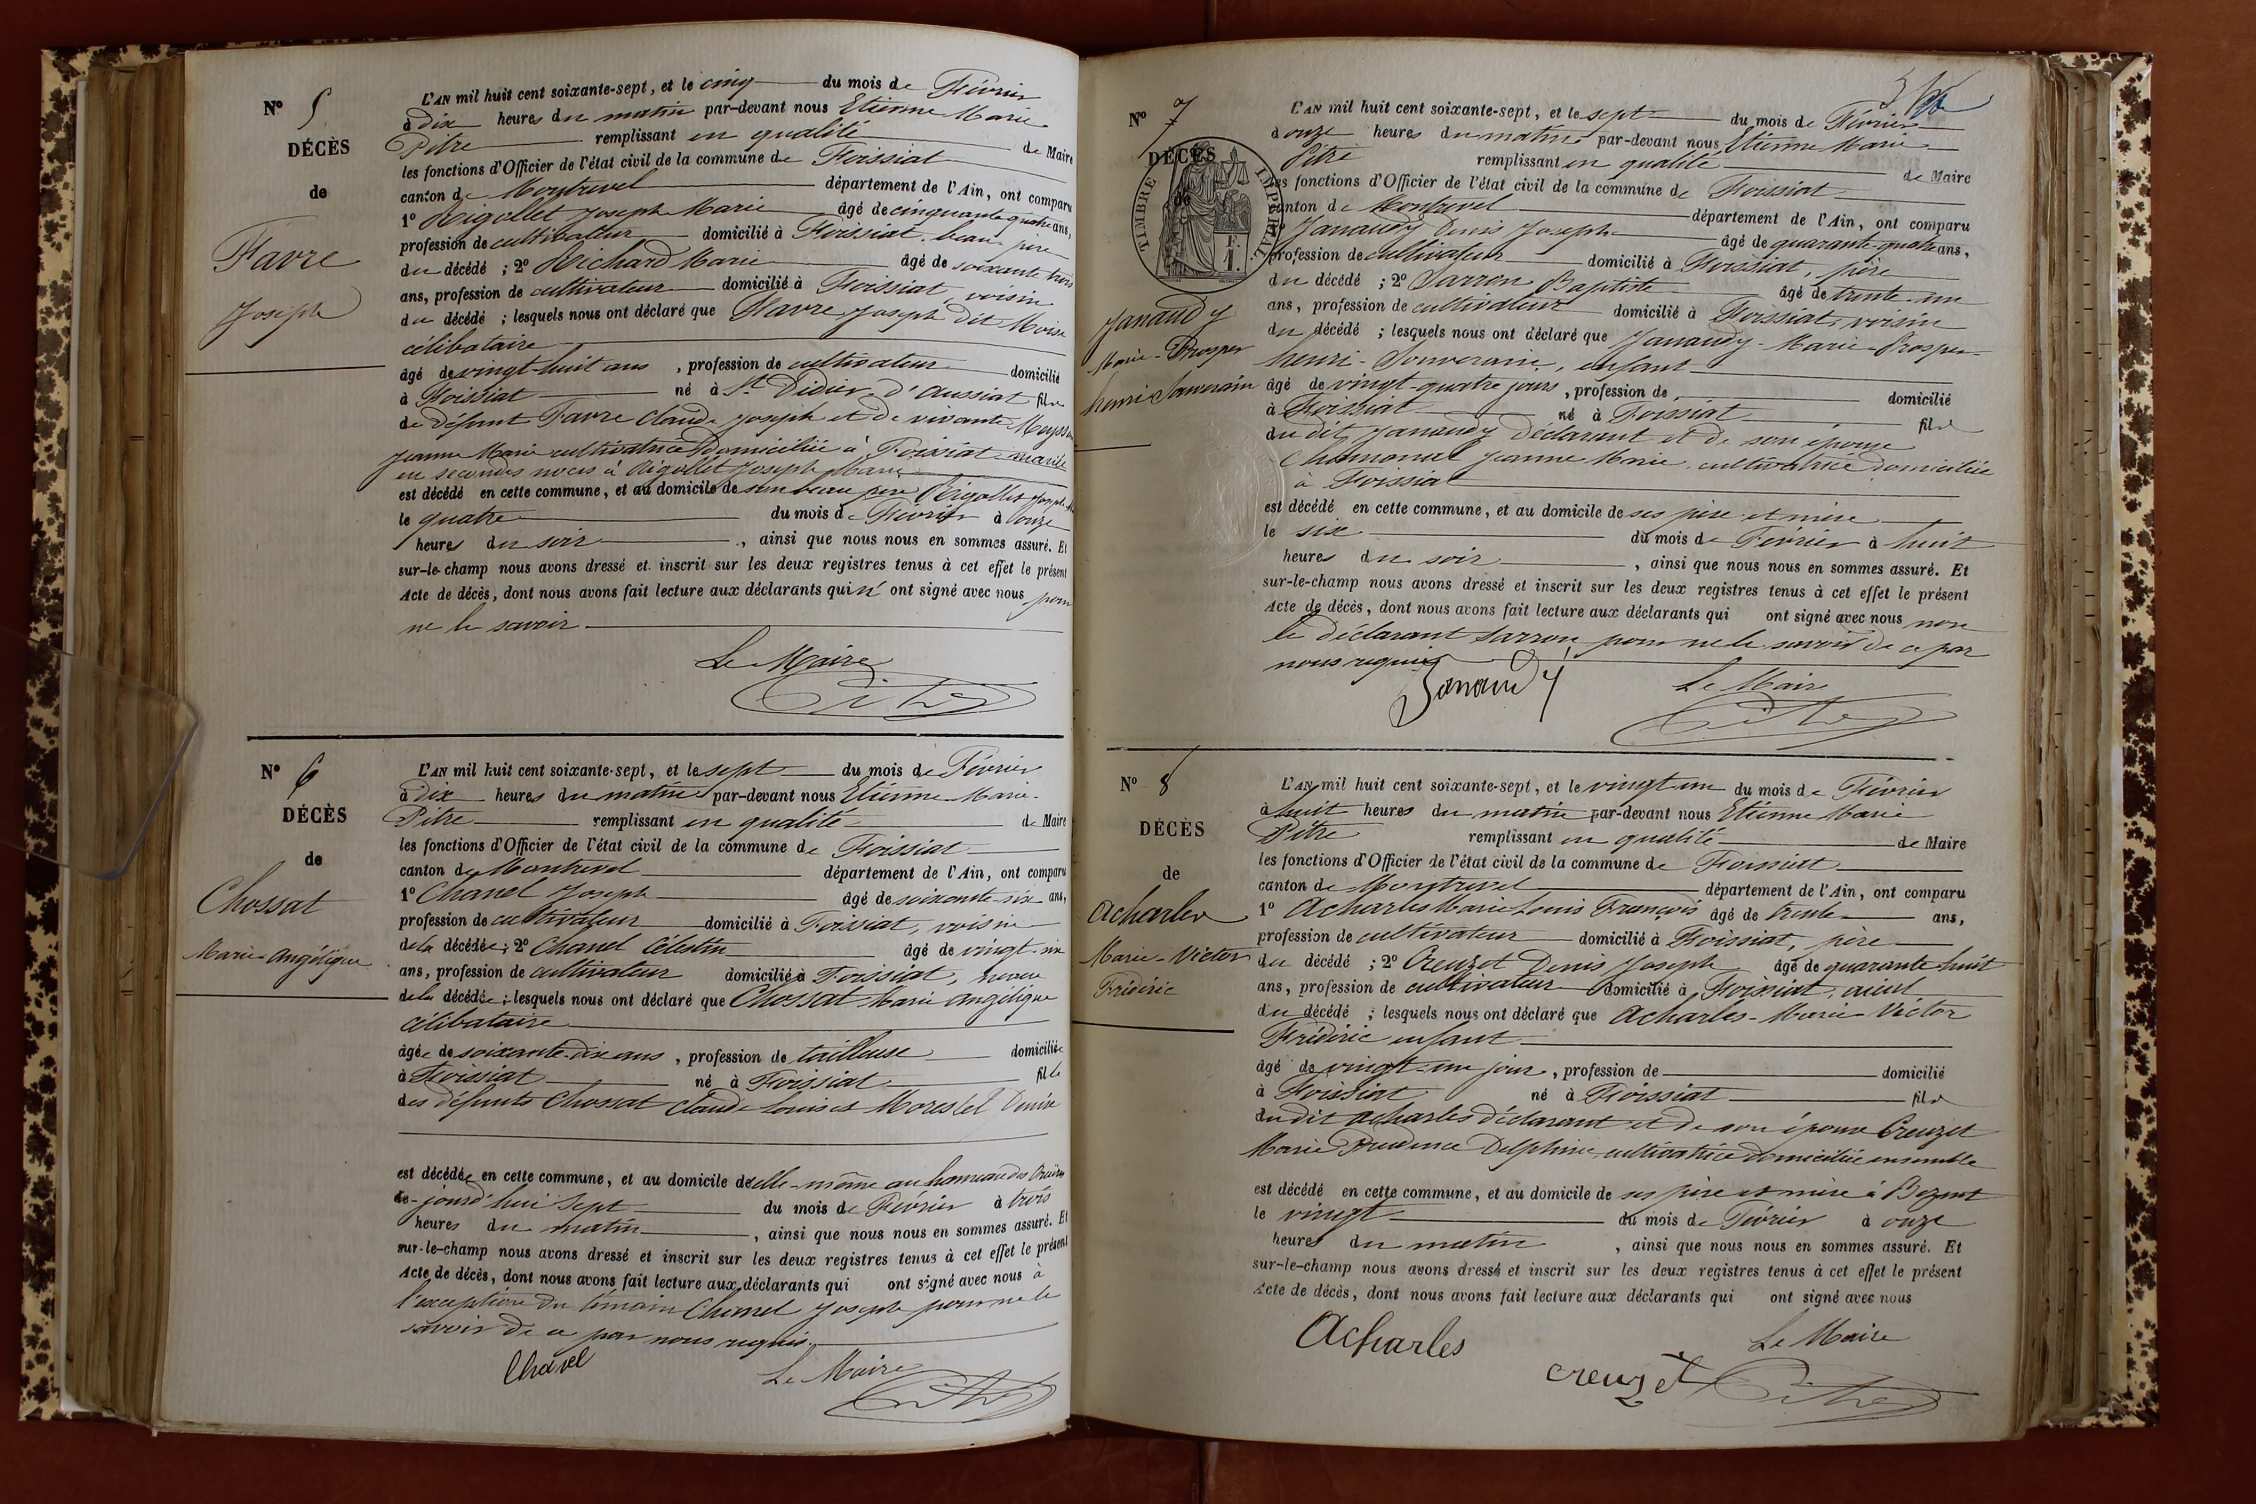 N° 5
DÉCÈS
de
Favre
Joseph
L'AN mil huit cent soixante-sept, et le cinq du mois de Février
à dix heures du matin par-devant nous Etienne Marie
Pitre remplissant en qualité de Maire
les fonctions d'Officier de l'état civil de la commune de Foissiat
canton de Montrevel département de l'Ain, ont comparu
1° Rigollet Joseph Marie âgé de cinquante quatre ans,
profession de cultivateur domicilié à Foissiat, beau père
du décédé ; 2° Richard Marie âgé de soixante trois
ans, profession de cultivateur domicilié à Foissiat, voisin
du décédé ; lesquels nous ont déclaré que Favre Joseph dit Moise
célibataire
âgé de vingt-huit ans, profession de cultivateur domicilié
à Foissiat né à St Didier d'Aussiat fils
de défunt Favre Claude Joseph et de vivante
Jeanne Marie cultivatrice domiciliée à Foissiat mariée
en secondes noces à Rigollet Joseph Marie
est décédé en cette commune, et au domicile de son beau père Rigollet Joseph
le quatre du mois de Février à onze
heures du soir, ainsi que nous nous en sommes assuré. Et
sur-le-champ nous avons dressé et inscrit sur les deux registres tenus à cet effet le présent
Acte de décès, dont nous avons fait lecture aux déclarants qui n' ont signé avec nous pour
ne le savoir
Le Maire
Pitre
N° 6
DÉCÈS
de
Chossat
Marie-Angélique
L'AN mil huit cent soixante-sept, et le sept du mois de Février
à dix heures du matin par-devant nous Etienne Marie
Pitre remplissant en qualité de Maire
les fonctions d'Officier de l'état civil de la commune de Foissiat
canton de Montrevel département de l'Ain, ont comparu
1° Chanel Joseph âgé de soixante-six ans,
profession de cultivateur domicilié à Foissiat, voisin
de la décédée ; 2° Chanel Célestin âgé de vingt-un
ans, profession de cultivateur domicilié à Foissiat, neveu
de la décédée ; lesquels nous ont déclaré que Chossat Marie Angélique
célibataire
âgée de soixante-dix ans, profession de tailleuse domiciliée
à Foissiat né à Foissiat fille
des défunts Chossat Claude Louis et Morestel Denise
est décédée en cette commune, et au domicile d'elle-même au hameau des
ce-jourd'hui sept du mois de Février à trois
heures du matin, ainsi que nous nous en sommes assuré. Et
sur-le-champ nous avons dressé et inscrit sur les deux registres tenus à cet effet le présent
Acte de décès, dont nous avons fait lecture aux déclarants qui ont signé avec nous à
l'exception du témoin Chanel Joseph pour ne le
savoir de ce par nous requis.
Chanel
Le Maire
Pitre
N° 7
DÉCÈS
de
TIMBRE IMPERIAL
Janaudy
Marie-Prosper
henri Souverain
L'AN mil huit cent soixante-sept, et le sept du mois de Février
à onze heures du matin par-devant nous Etienne Marie
Pitre remplissant en qualité de Maire
les fonctions d'Officier de l'état civil de la commune de Foissiat
canton de Montrevel département de l'Ain, ont comparu
Janaudy Denis Joseph âgé de quarante-quatre ans,
profession de cultivateur domicilié à Foissiat, père
du décédé ; 2° Sarron Baptiste âgé de trente-un
ans, profession de cultivateur domicilié à Foissiat, voisin
du décédé ; lesquels nous ont déclaré que Janaudy-Marie-Prosper-
henri-Souverain, enfant
âgé de vingt-quatre jours, profession de domicilié
à Foissiat né à Foissiat fils
du dit Janaudy déclarant et de son épouse
Jeanne Marie cultivatrice domiciliée
à Foissiat
est décédé en cette commune, et au domicile de ses père et mère
le six du mois de Février à huit
heures du soir, ainsi que nous nous en sommes assuré. Et
sur-le-champ nous avons dressé et inscrit sur les deux registres tenus à cet effet le présent
Acte de décès, dont nous avons fait lecture aux déclarants qui ont signé avec nous non
le déclarant Sarron pour ne le savoir de ce par
nous requis
Janaudy
Le Maire
Pitre
N° 8
DÉCÈS
de
Acharles
Marie-Victor
Fréderic
L'AN mil huit cent soixante-sept, et le vingt un du mois de Février
à huit heures du matin par-devant nous Etienne Marie
Pitre remplissant en qualité de Maire
les fonctions d'Officier de l'état civil de la commune de Foissiat
canton de Montrevel département de l'Ain, ont comparu
1° Acharles Marie Louis François âgé de trente ans,
profession de cultivateur domicilié à Foissiat, père
du décédé ; 2° Creuzet Denis Joseph âgé de quarante huit
ans, profession de cultivateur domicilié à Foissiat, aieul
du décédé ; lesquels nous ont déclaré que Acharles-Marie-Victor
Fréderic enfant
âgé de vingt-un jour, profession de domicilié
à Foissiat né à Foissiat fils
du dit Acharles déclarant et de son épouse Creuzet
Marie Prudence Delphine cultivatrice domiciliée ensemble
est décédé en cette commune, et au domicile de ses père et mère à Bezent
le vingt du mois de Février à onze
heures du matin, ainsi que nous nous en sommes assuré. Et
sur-le-champ nous avons dressé et inscrit sur les deux registres tenus à cet effet le présent
Acte de décès, dont nous avons fait lecture aux déclarants qui ont signé avec nous
Acharles
Le Maire
creuzet
Pitre